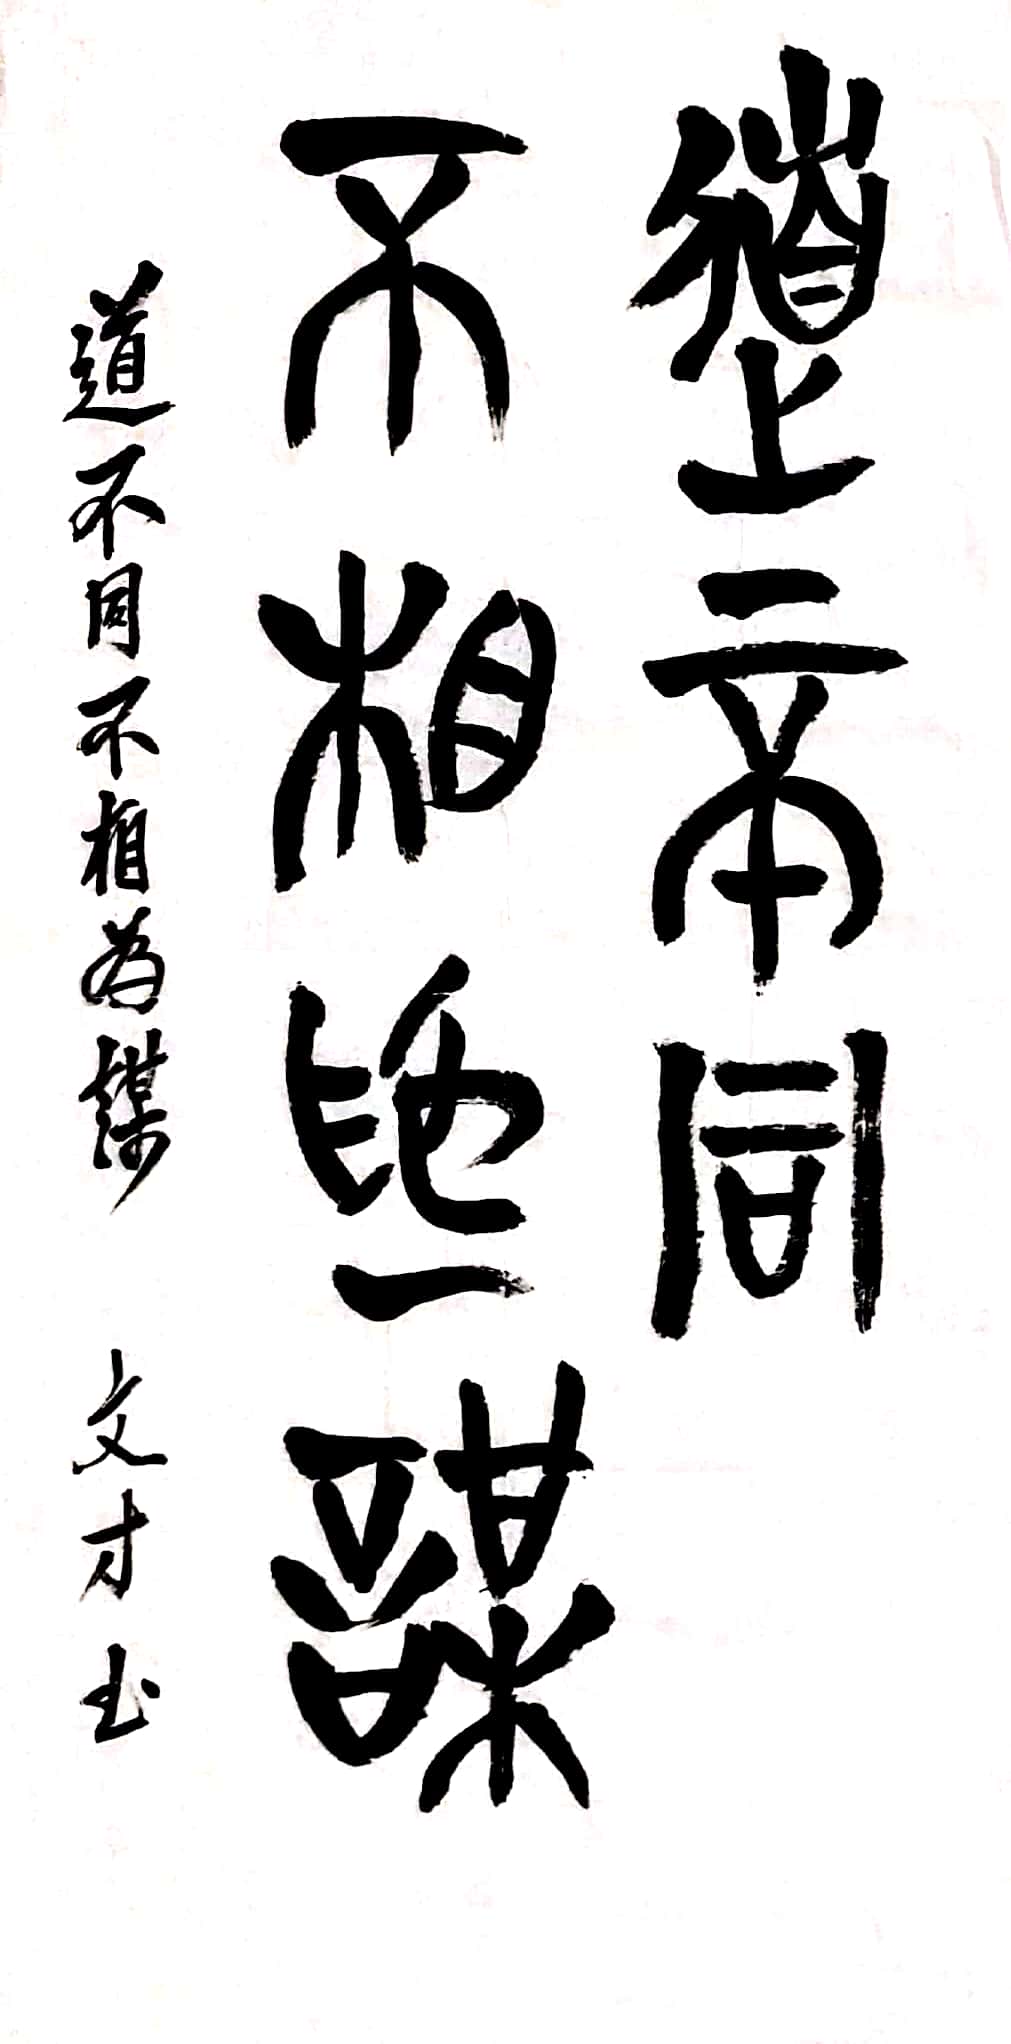 道不同
不相為謀
道不同不相為謀 文才书